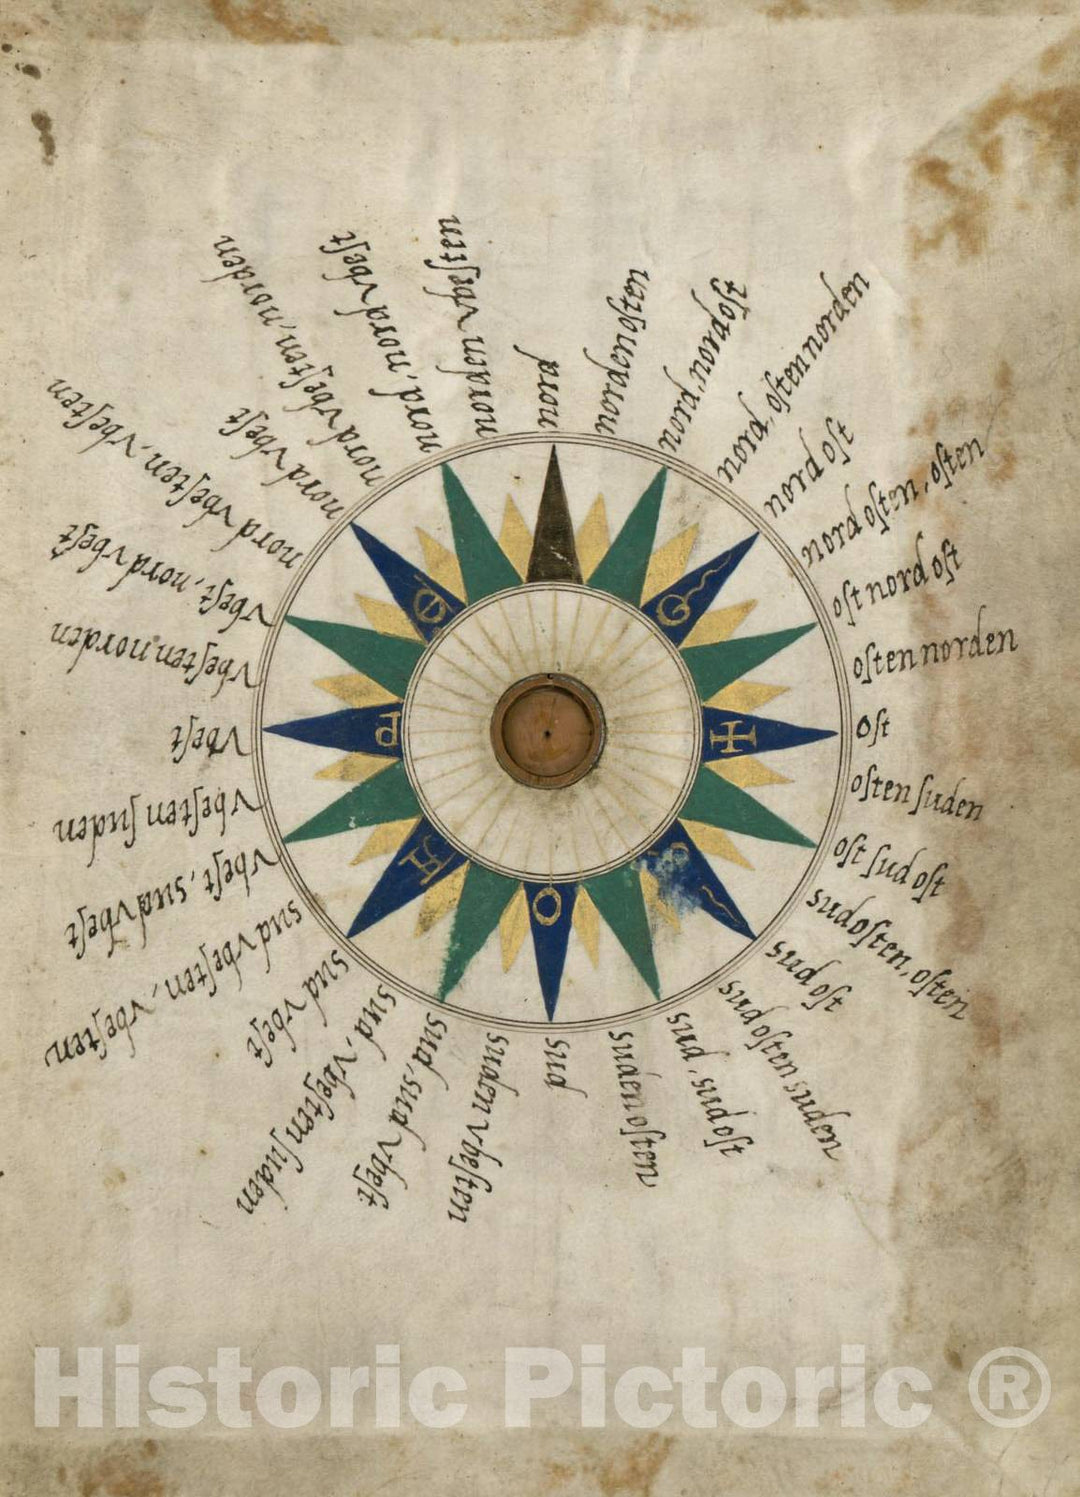 nord
nordenosten
nord, nordost
nord, ostennorden
nord ost
nord osten, osten
ost nord ost
osten norden
ost
osten suden
ost sud ost
sudosten, osten
sud ost
sudosten suden
sud, sudost
suden osten
sud
suden vbesten
sud, sud vbest
sud, vbesten suden
sud vbest
sud vbesten, vbesten
vbest, sudvbest
vbesten suden
vbest
vbesten norden
vbest, nord vbest
nord vbesten, vbesten
nord vbest
nord vbesten, norden
nord, nord vbest
norden vbesten
G
✠
O
P
Historic Pictoric ®